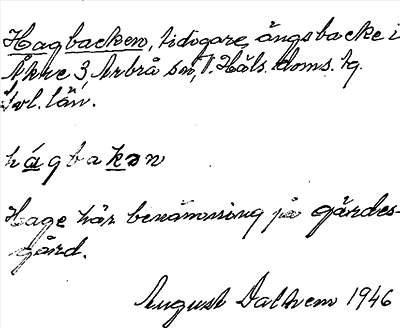 Hagbacken, tidigare ängsbacke i
Åkre 3, Arbrå sn, V. Häls. doms. hg.
Gvl. län.
hágbakən
Hage här benämning på gärdes-
gård.
August Dalhem 1946